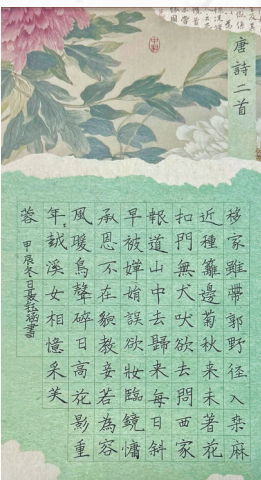 唐詩二首
移家雖帶郭野徑入桑麻
近種籬邊菊秋來未著花
扣門無犬吠欲去問西家
報道山中去歸來每日斜
早被嬋娟誤欲妝臨鏡慵
承恩不在貌教妾若為容
風暖鳥聲碎日高花影重
年〻越溪女相憶采芙
蓉
甲辰冬日聂鈺涵書